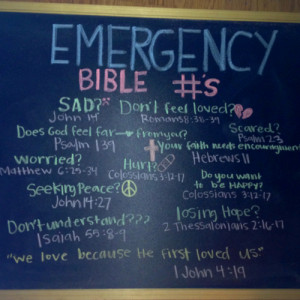 EMERGENCY
BIBLE #'S
SAD? Don't feel loved?
John 14 Romans 8:38-39
Does God feel far from you? Scared?
Psalm 139 Psalm 23
Your faith needs encouragement
Hebrews 11
Worried? Hurt?
Matthew 6:25-34 Colossians 3:12-17
Do you want
to be HAPPY?
Seeking Peace? Colossians 3:12-17
John 14:27
losing Hope?
Don't understand??? 2 Thessalonians 2:16-17
Isaiah 55:8-9
"We love because He first loved us."
1 John 4:19